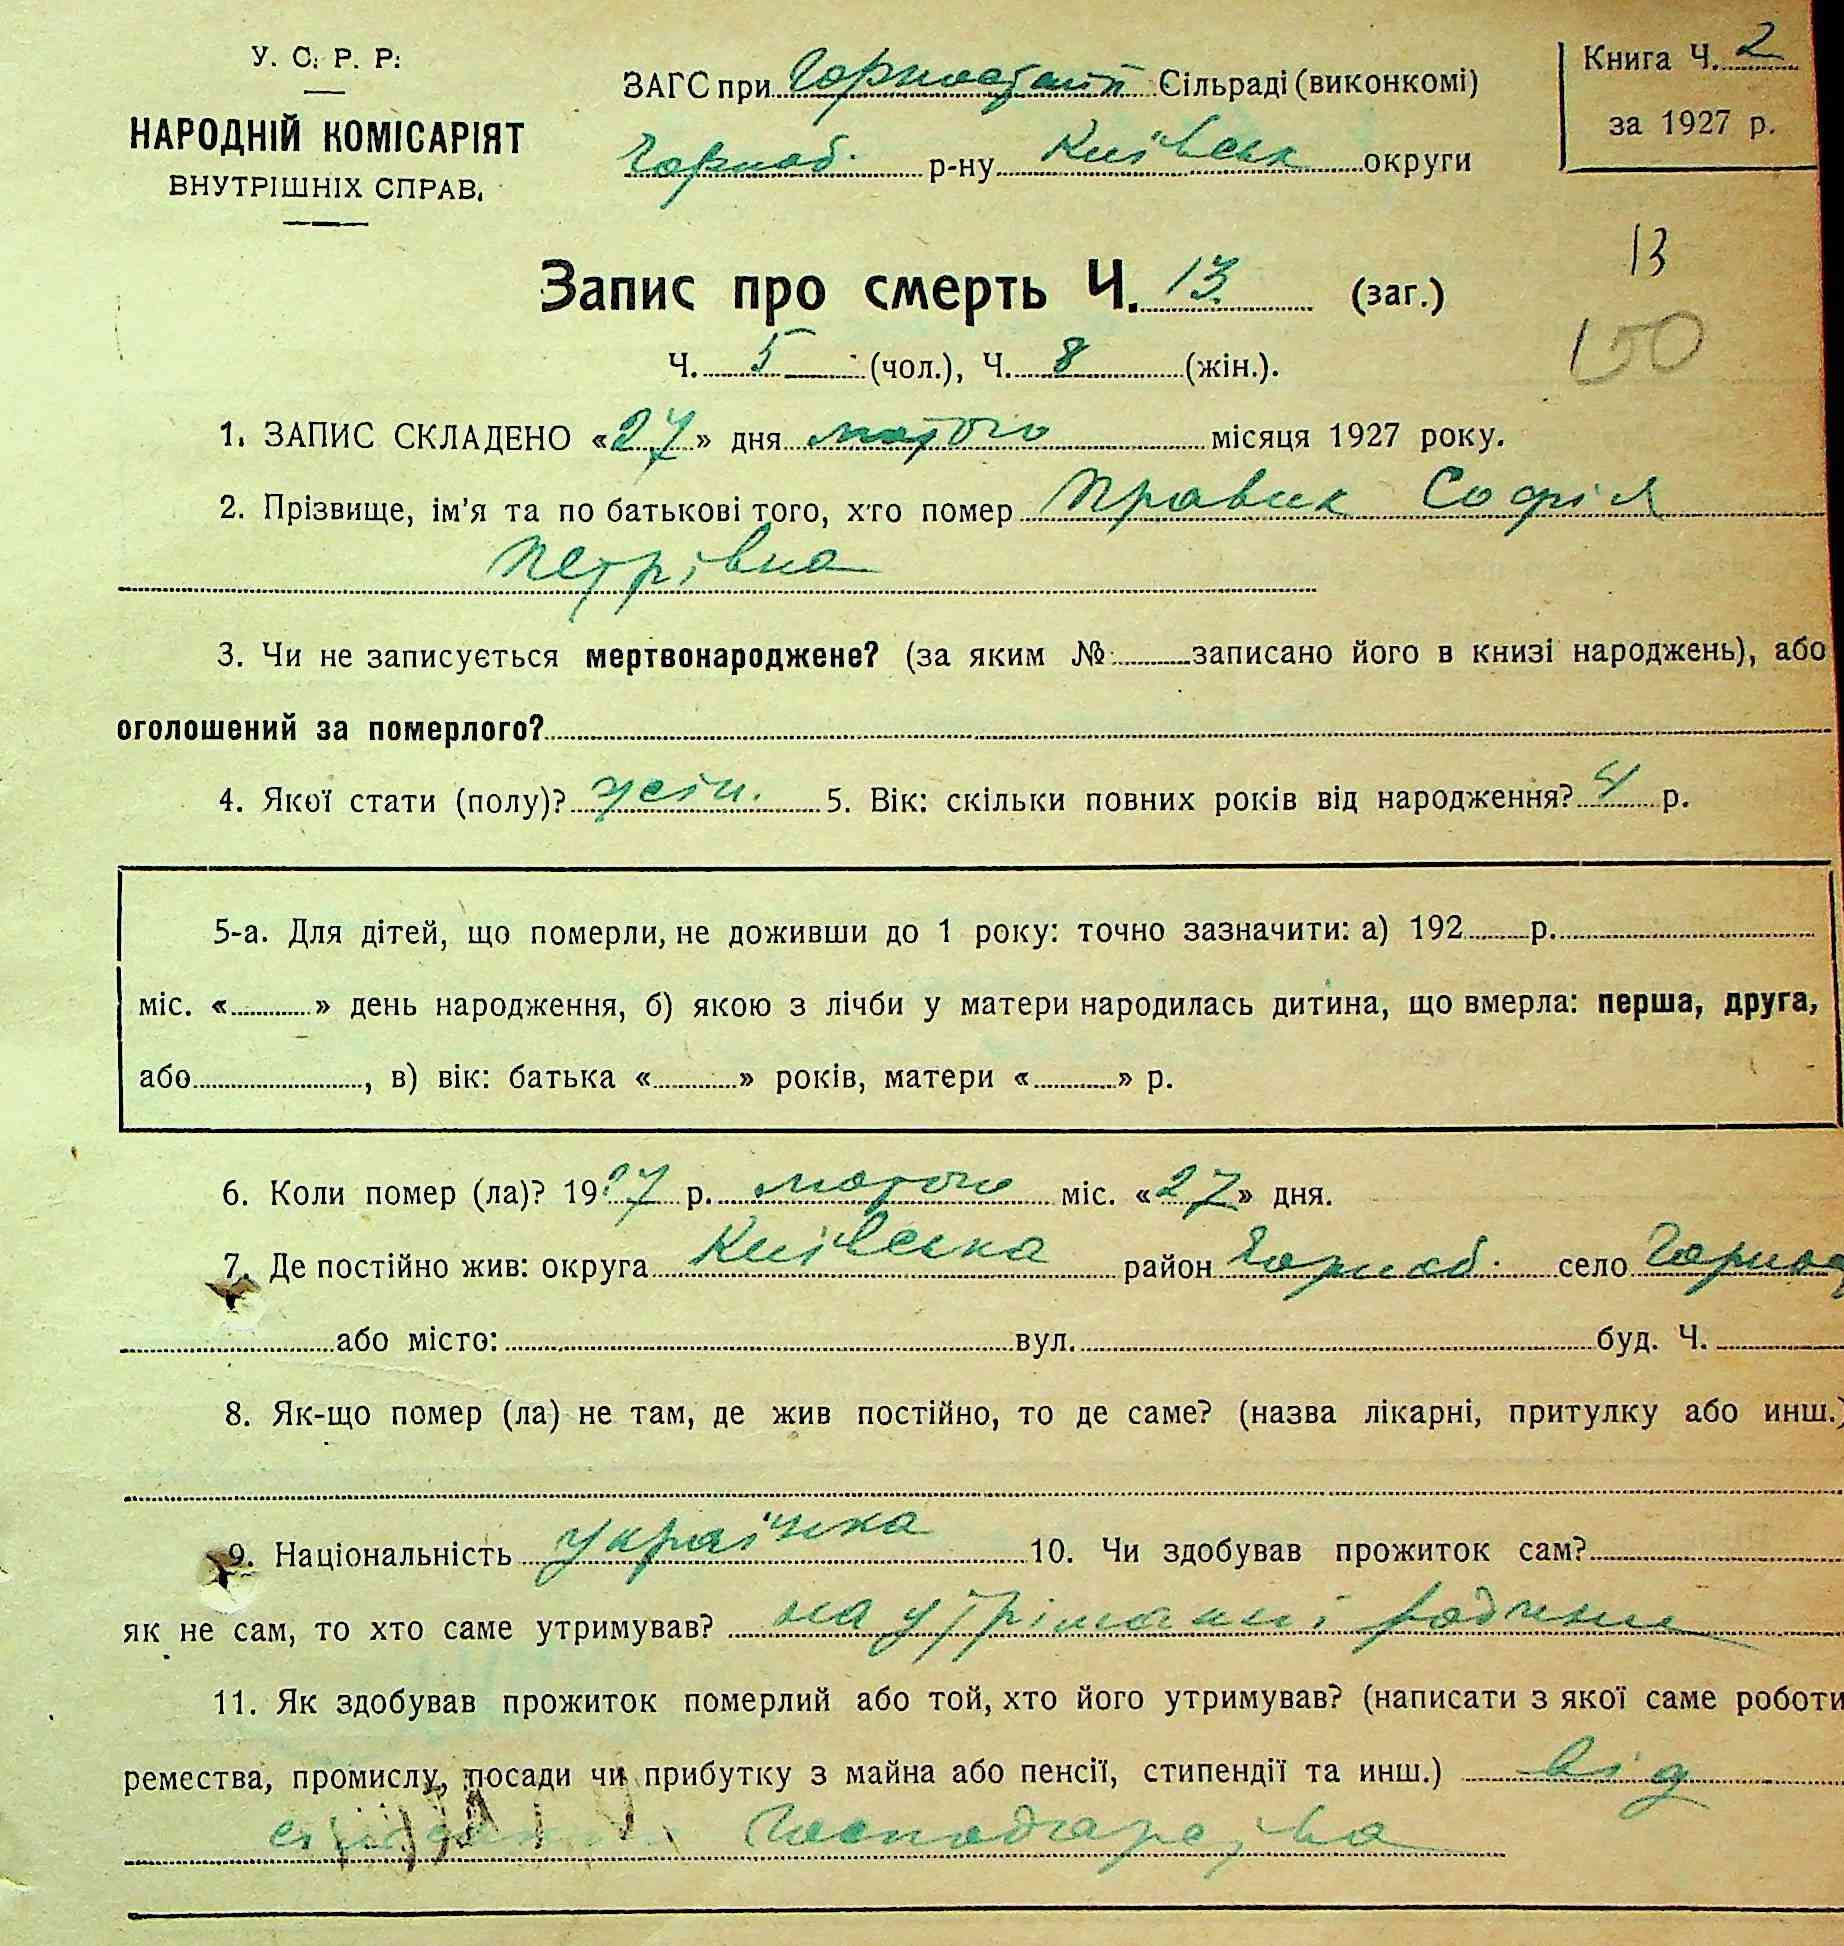 У. С. Р. Р.
НАРОДНІЙ КОМІСАРІЯТ
ВНУТРІШНІХ СПРАВ.
ЗАГС при Горностайп Сільраді (виконкомі)
Горноб. р-ну Київськ округи
Книга Ч. 2
за 1927 р.
13
Запис про смерть Ч. 13. (заг.)
150
Ч. 5 (чол.), Ч. 8 (жін.).
1. ЗАПИС СКЛАДЕНО «27» дня лютого місяця 1927 року.
2. Прізвище, ім'я та по батькові того, хто помер Правик Софія
Петрівна
3. Чи не записується мертвонароджене? (за яким № записано його в книзі народжень), або
оголошений за померлого?
4. Якої стати (полу)? жін. 5. Вік: скільки повних років від народження? 4 р.
5-а. Для дітей, що померли, не доживши до 1 року: точно зазначити: а) 192 р.
міс. « » день народження, б) якою з лічби у матери народилась дитина, що вмерла: перша, друга,
або , в) вік: батька « » років, матери « » р.
6. Коли помер (ла)? 1927 р. лютого міс. «27» дня.
7. Де постійно жив: округа Київська район село Горнос
або місто: вул. буд. Ч.
8. Як-що помер (ла) не там, де жив постійно, то де саме? (назва лікарні, притулку або инш.)
9. Національність українка 10. Чи здобував прожиток сам?
як не сам, то хто саме утримував? на утріманні родини
11. Як здобував прожиток померлий або той, хто його утримував? (написати з якої саме роботи
ремества, промислу, посади чи прибутку з майна або пенсії, стипендії та инш.) від
сільського господарства